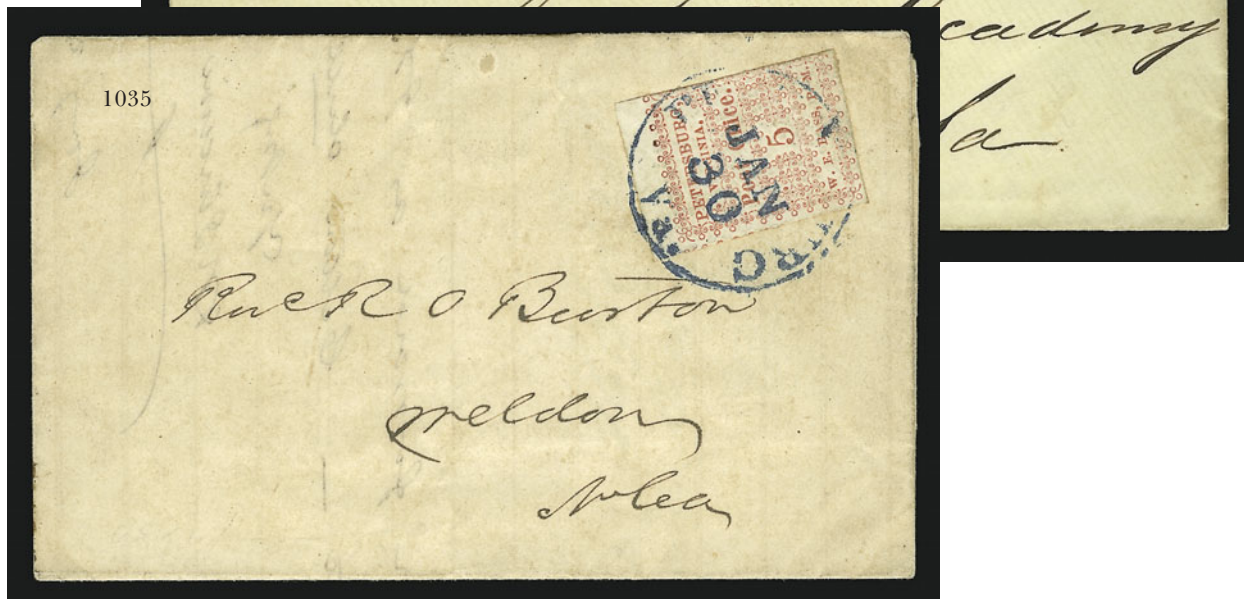 cademy
la
1035
PETERSBURG
VIRGINIA.
Post Office.
5
W. E. BASS, P. M.
JAN
30
URG
Va.
Rev R O Burton
Weldon
No Ca